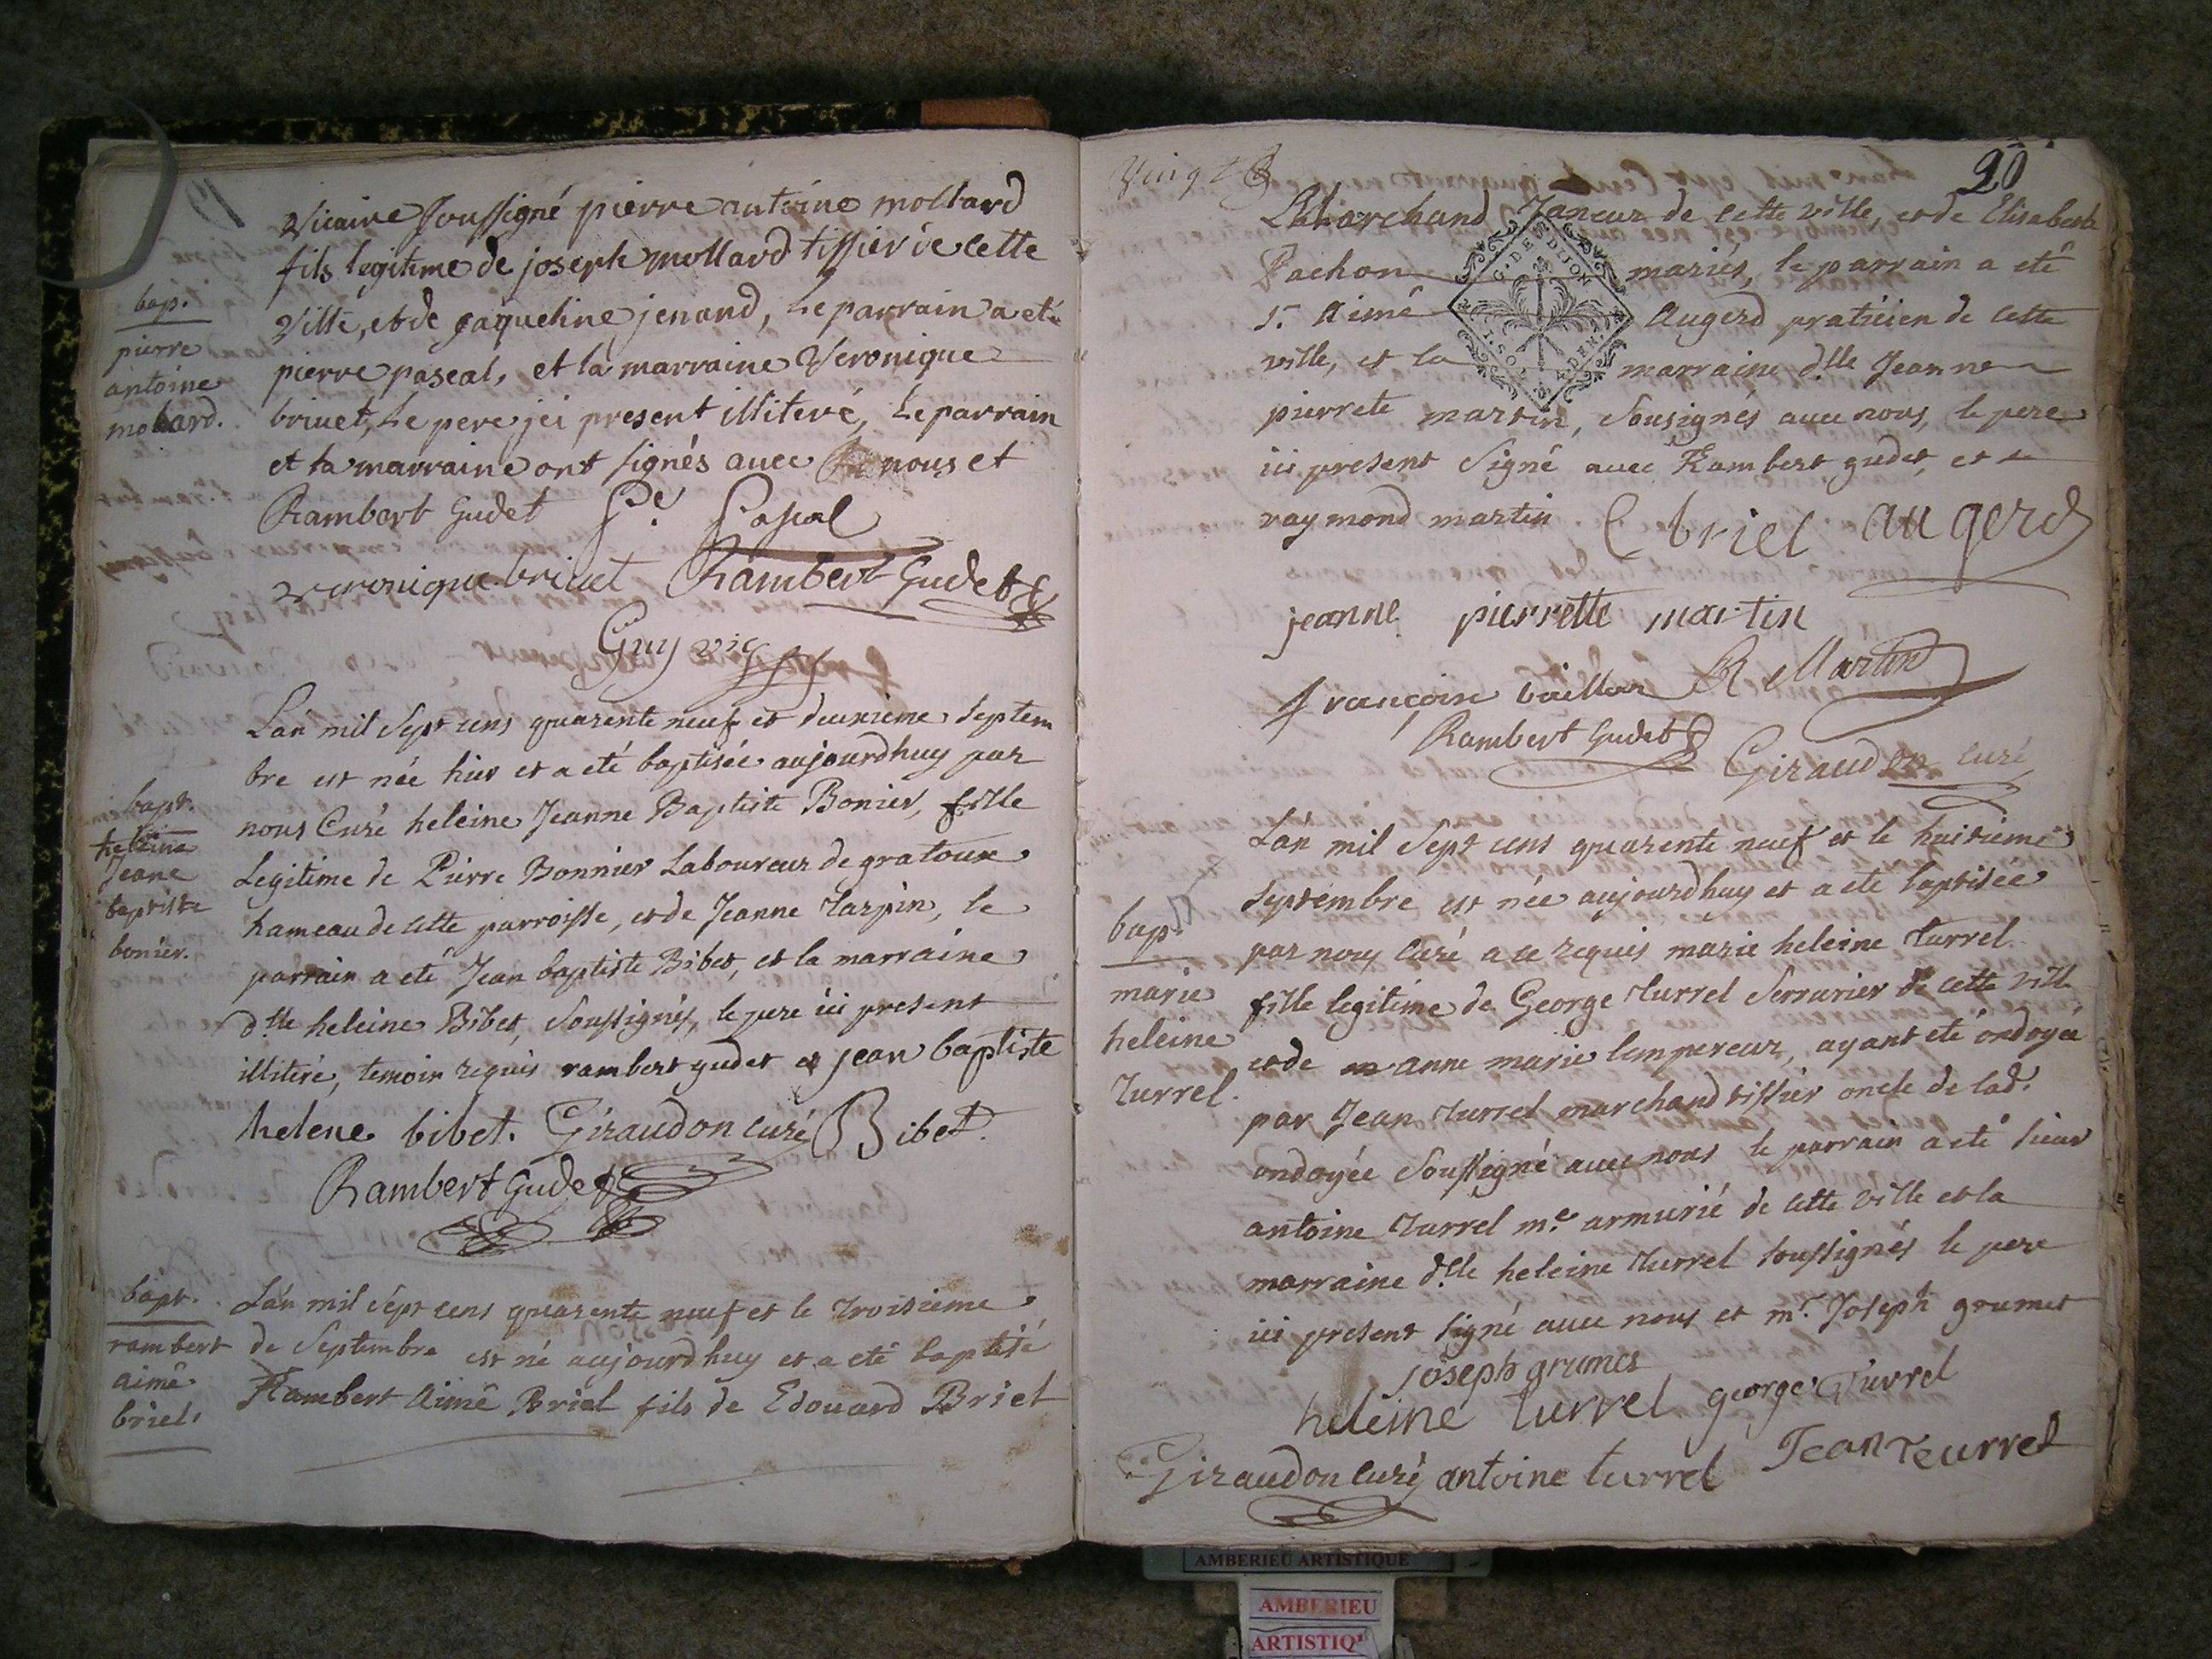 Vicaire soussigné pierre antoine mollard
fils legitime de joseph mollard tissier de cette
Ville, et de jaqueline jenand, Le parrain a eté
pierre pascal, et la marraine Veronique
brivet, Le pere jci present illiteré, Le parrain
et la marraine ont signés avec nous et
Rambert Gudet P.e Pascal
veronique brivet Rambert Gudet
Guy vic
bap.
pierre
antoine
mollard.
L'an mil sept cens quarente neuf et deuxieme septem
bre est née hier et a eté baptisée aujourdhuy par
nous Curé heleine Jeanne Baptiste Bonier, fille
Legitime de Pierre Bonnier Laboureur de gratoux
hameau de cette parroisse, et de Jeanne Tarpin, le
parrain a eté Jean baptiste Bibet, et la marraine
d.lle heleine Bibet, soussignés, le pere ici present
illiteré, temoin requis rambert gudet et jean baptiste
helene bibet. Giraudon curé Bibet.
Rambert Gudet
bapt.
heleine
Jeane
baptiste
bonier.
bapt.
rambert
aimé
briel.
L'an mil sept cens quarente neuf et le troisieme
de Septembre est né aujourdhuy et a eté baptisé
Rambert Aimé Briel fils de Edouard Briel
Vingt
20
Marchand Taneur de cette ville, et de Elisabeth
Pachon mariés, le parrain a eté
s.r Aimé Augerd pratiçien de cette
ville, et la marraine d.lle Jeanne
pierrete martin, sousignés avec nous, le pere
ici present signé avec Rambert gudet, et
raymond martin E briel augerd
G. DE DIJON
jeanne pierrette martin
françoise vaillan R Martin
Rambert Gudet Giraudon curé
L'an mil sept cens quarente neuf et le huitieme
septembre est née aujourdhuy et a eté baptisée
par nous curé a ce requis marie heleine turrel
fille legitime de George turrel serrurier de cette ville
et de anne marie lempereur, ayant eté ondoyée
par Jean turrel marchand tissier oncle de lad.
ondoyée soussigné avec nous le parrain a eté sieur
antoine turrel m.e armurié de cette ville et la
marraine d.lle heleine turrel soussignés le pere
ici present signé avec nous et m.r Joseph grumet
joseph grumet
heleine turrel george turrel
Giraudon curé antoine turrel Jean teurrel
bap.
marie
heleine
turrel.
AMBERIEU ARTISTIQUE
AMBERIEU
ARTISTIQ